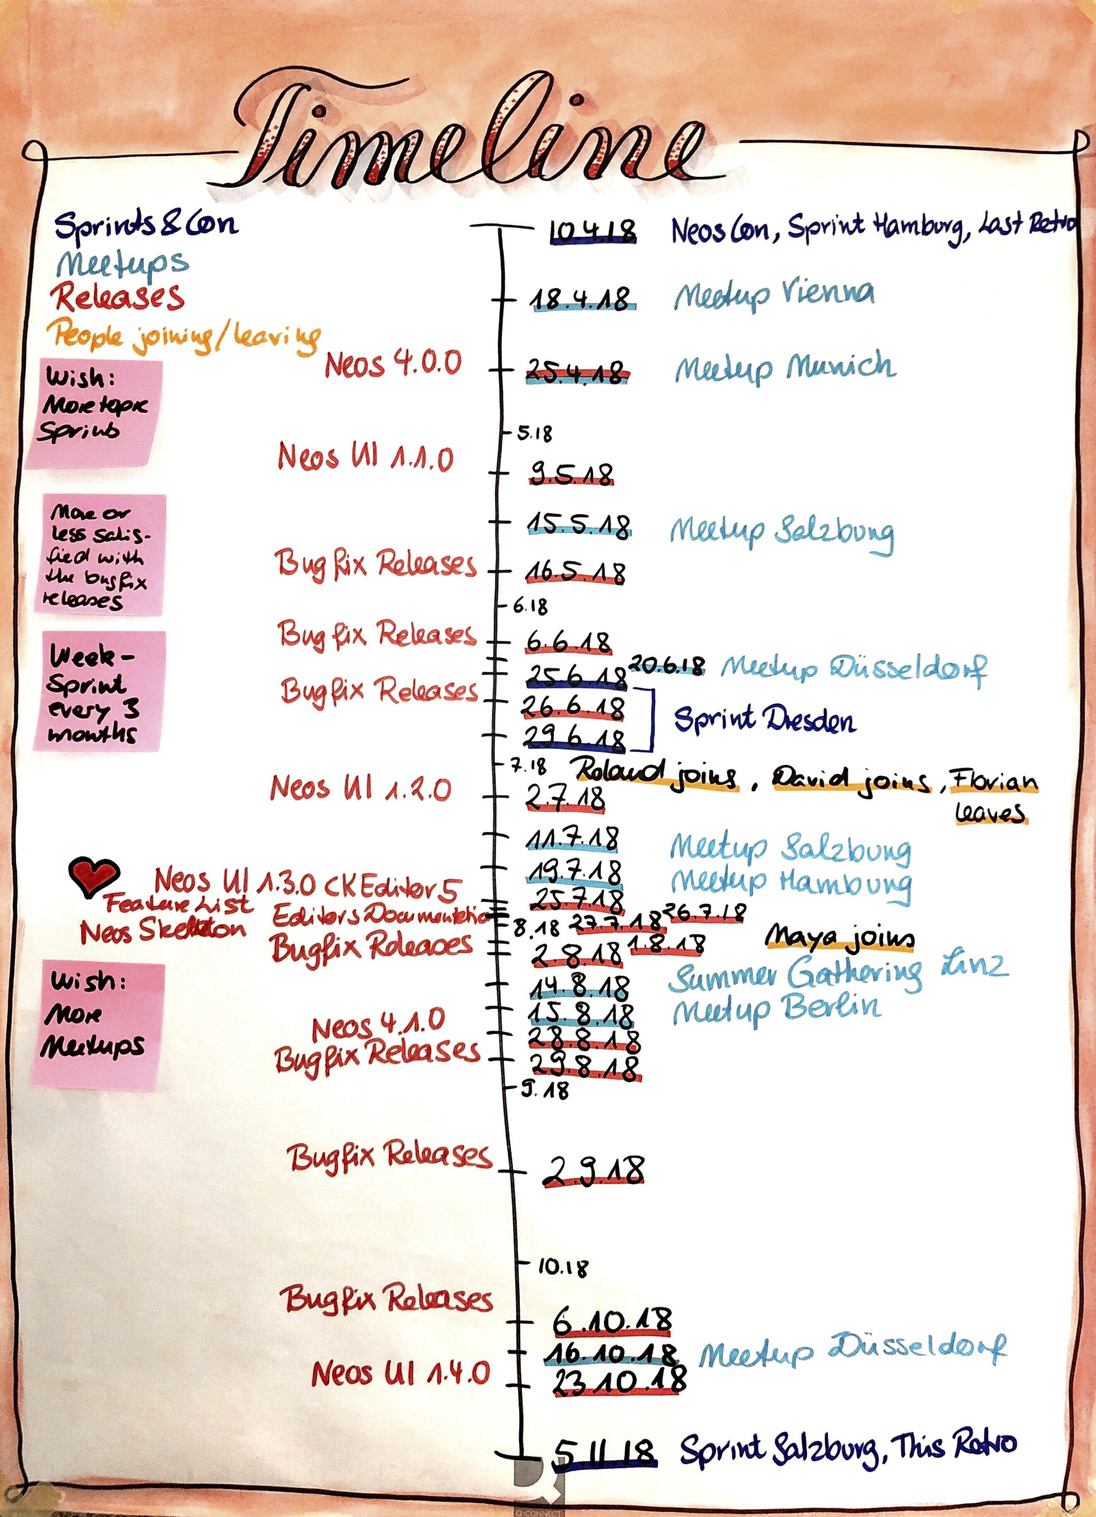 Timeline
Sprints & Con
Meetups
Releases
People joining/leaving
10.4.18 Neos Con, Sprint Hamburg, Last Retro
18.4.18 Meetup Vienna
Neos 4.0.0 25.4.18 Meetup Munich
Wish:
More topic
Sprints
5.18
Neos UI 1.1.0 9.5.18
15.5.18 Meetup Salzburg
More or
less satis-
fied with
the bugfix
releases
Bugfix Releases 16.5.18
6.18
Bugfix Releases 6.6.18
20.6.18 Meetup Düsseldorf
25.6.18
Bugfix Releases 26.6.18 Sprint Dresden
29.6.18
Week-
Sprint
every 3
months
7.18 Roland joins, David joins, Florian
leaves
Neos UI 1.2.0 2.7.18
11.7.18 Meetup Salzburg
19.7.18 Meetup Hamburg
Neos UI 1.3.0 CK Editor 5 25.7.18
Feature List Editors Documentation 26.7.18
Neos Skeleton 8.18 27.7.18
1.8.18 Maya joins
Bugfix Releases 2.8.18
14.8.18 Summer Gathering Linz
15.8.18 Meetup Berlin
Wish:
More
Meetups
Neos 4.1.0 28.8.18
Bugfix Releases 29.8.18
9.18
Bugfix Releases 2.9.18
10.18
Bugfix Releases 6.10.18
16.10.18 Meetup Düsseldorf
Neos UI 1.4.0 23.10.18
5.11.18 Sprint Salzburg, This Retro